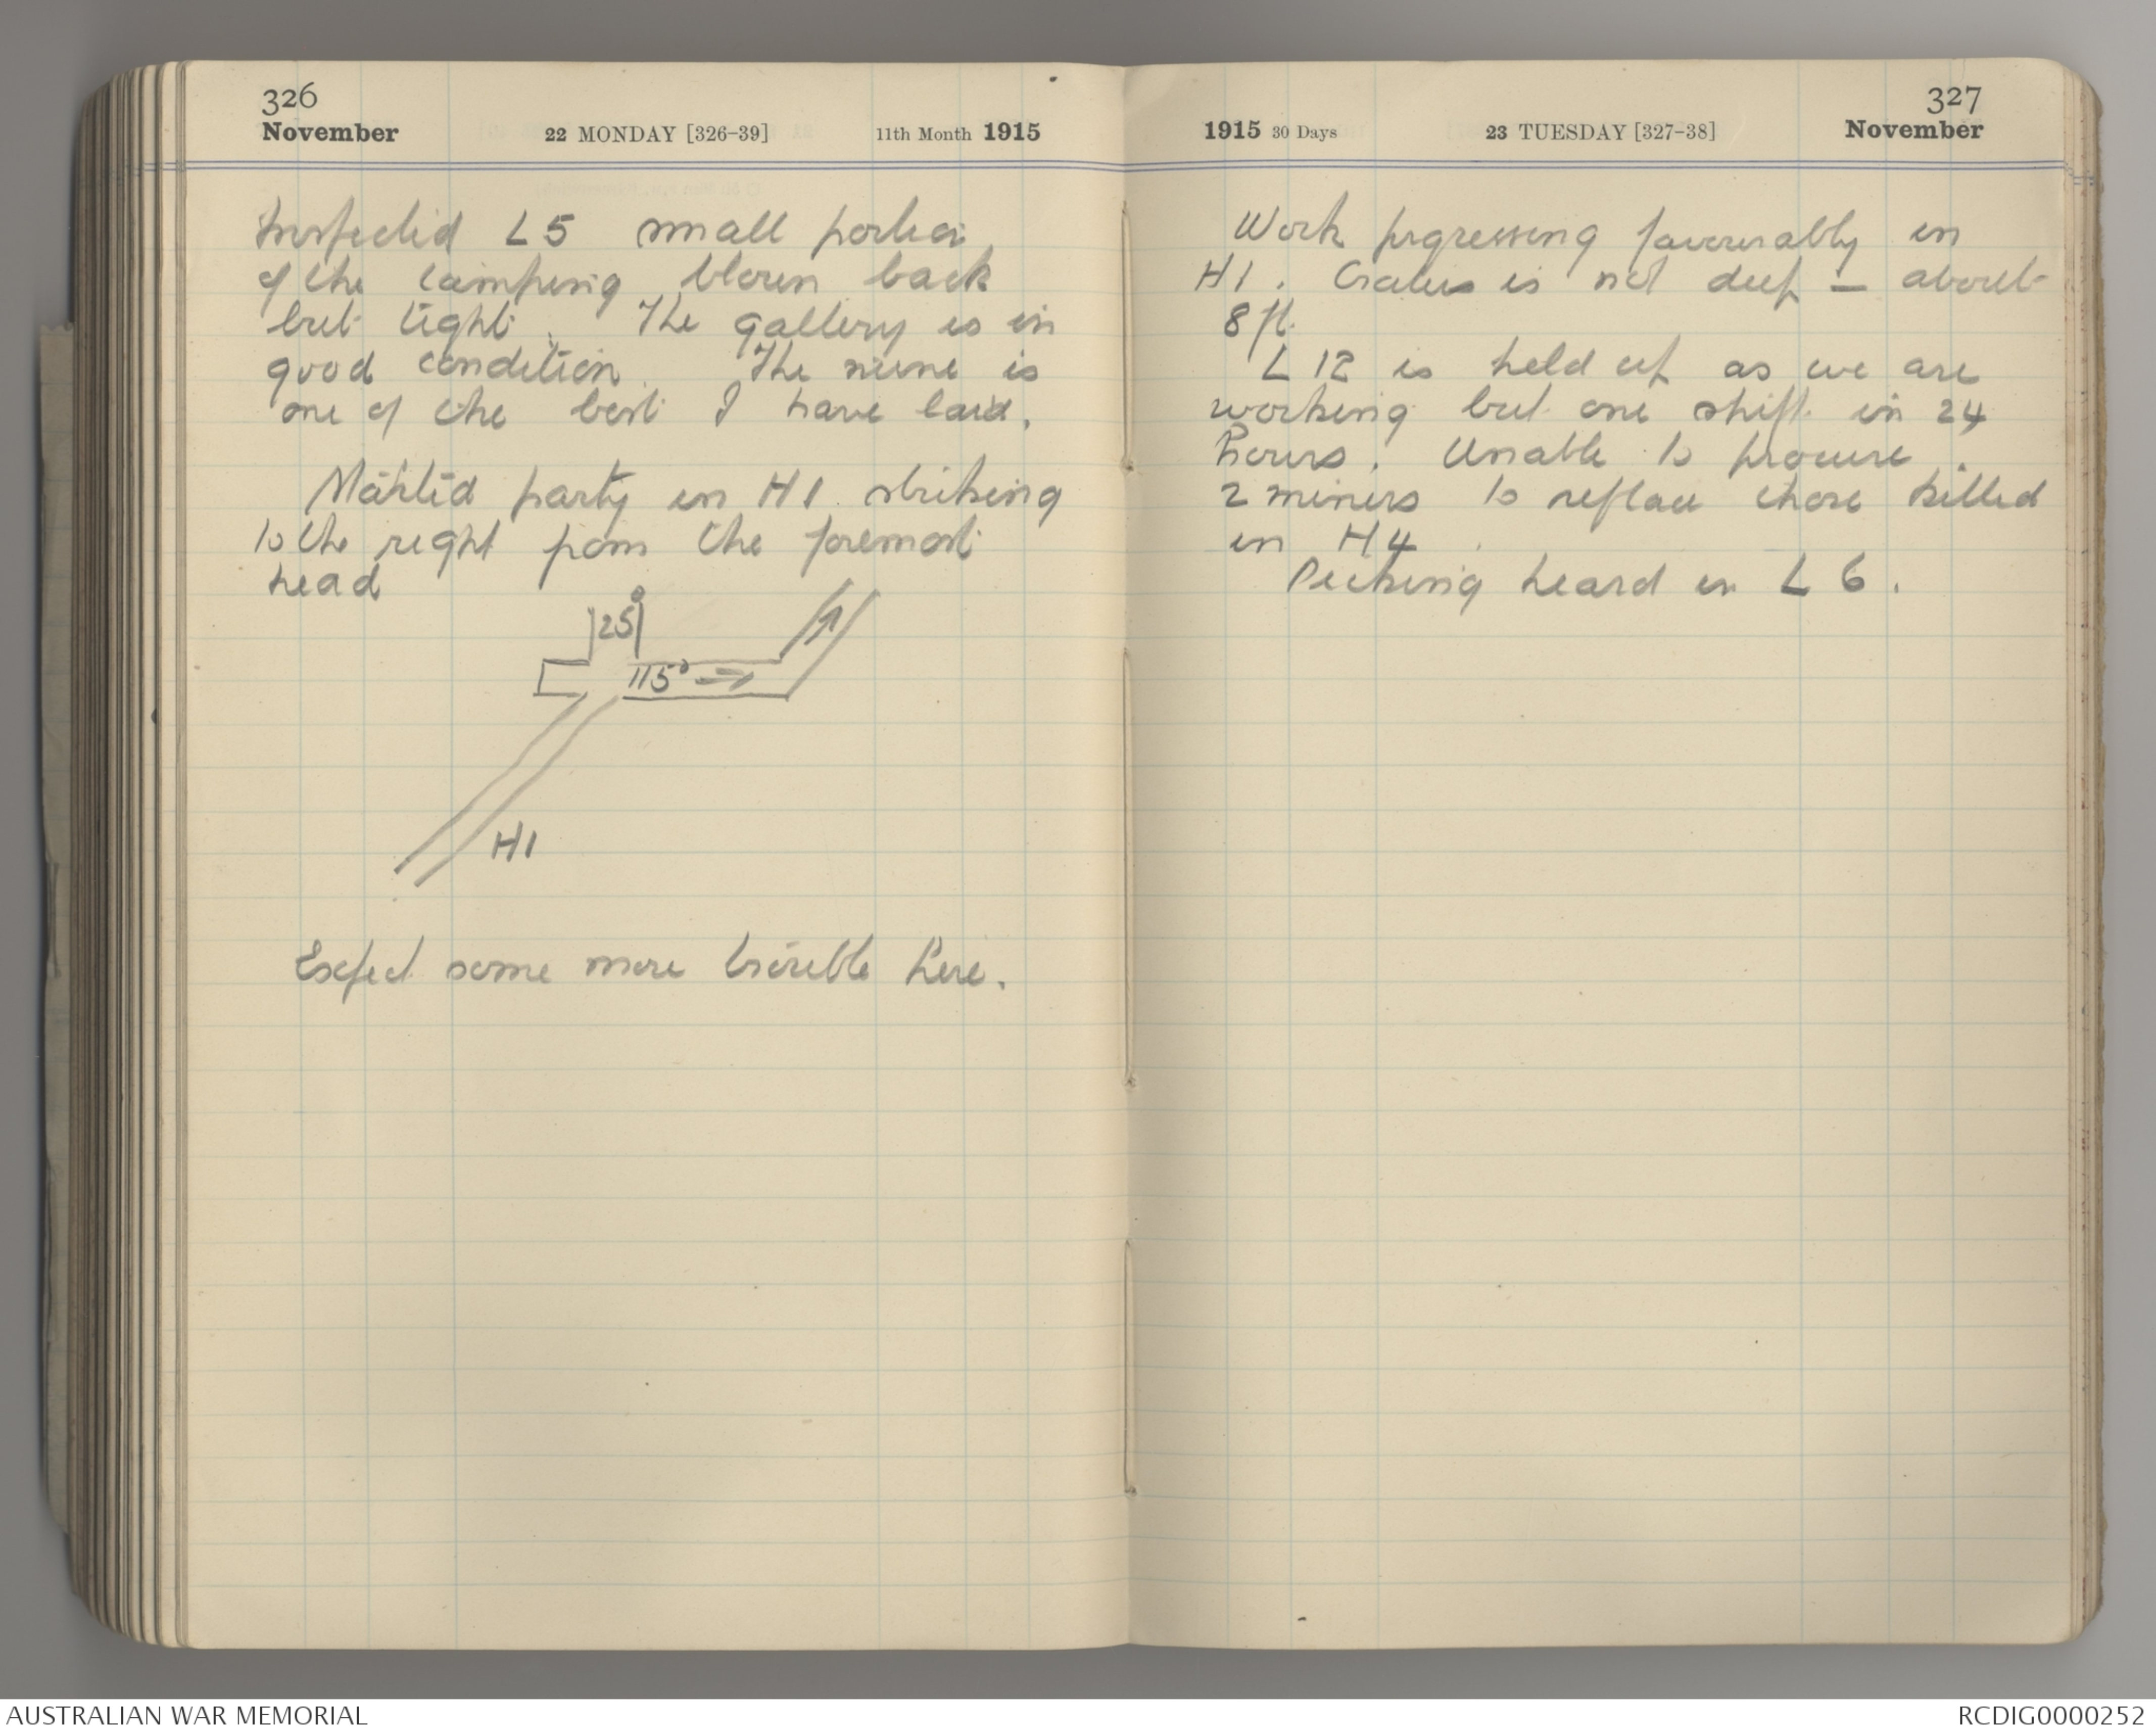 326
November 22 MONDAY [326-39] 11th Month 1915
Inspected L5 small portion
of the tamping blown back
but tight. The gallery is in
good condition. The mine is
one of the best I have laid.
Started party in H1 striking
to the right from the foremost
head
25°
115°
H1
Expect some more trouble here.
327
1915 30 Days 23 TUESDAY [327-38] November
Work progressing favourably in
H1. Crater is not deep - about
8 ft.
L 12 is held up as we are
working but one shift in 24
hours. Unable to procure
2 miners to replace those killed
in H4.
Picking heard in L 6.
AUSTRALIAN WAR MEMORIAL
RCDIG0000252